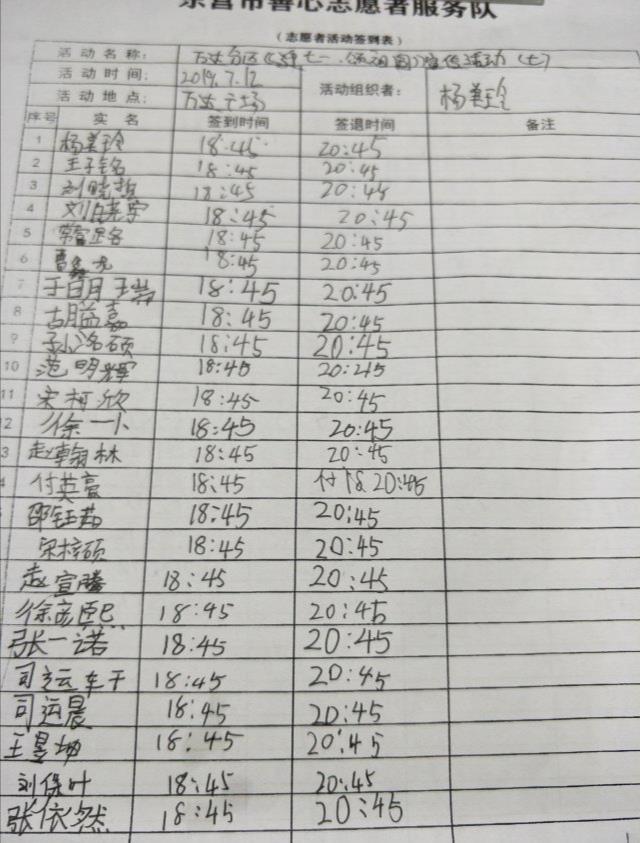 东营市善心志愿者服务队
(志愿者活动签到表)
活动名称： 万达分区 宣传活动(七)
活动时间： 2019.7.12 活动组织者： 杨美玲
活动地点： 万达广场
序号 实名 签到时间 签退时间 备注
1 杨美玲 18:45 20:45
2 王子铭 18:45 20:45
3 刘晓哲 18:45 20:45
4 刘 宇 18:45 20:45
5 18:45 20:45
6 曹 18:45 20:45
7 于白月 18:45 20:45
8 古月益嘉 18:45 20:45
9 18:45 20:45
10 范明辉 18:45 20:45
11 宋柯欣 18:45 20:45
2 徐一卜 18:45 20:45
3 赵翰林 18:45 20:45
4 付英豪 18:45 20:45
邵钰茹 18:45 20:45
宋梓硕 18:45 20:45
赵宣腾 18:45 20:45
徐彦熙 18:45 20:45
张一诺 18:45 20:45
司运车干 18:45 20:45
司运晨 18:45 20:45
王昱 18:45 20:45
刘保叶 18:45 20:45
张依然 18:45 20:45